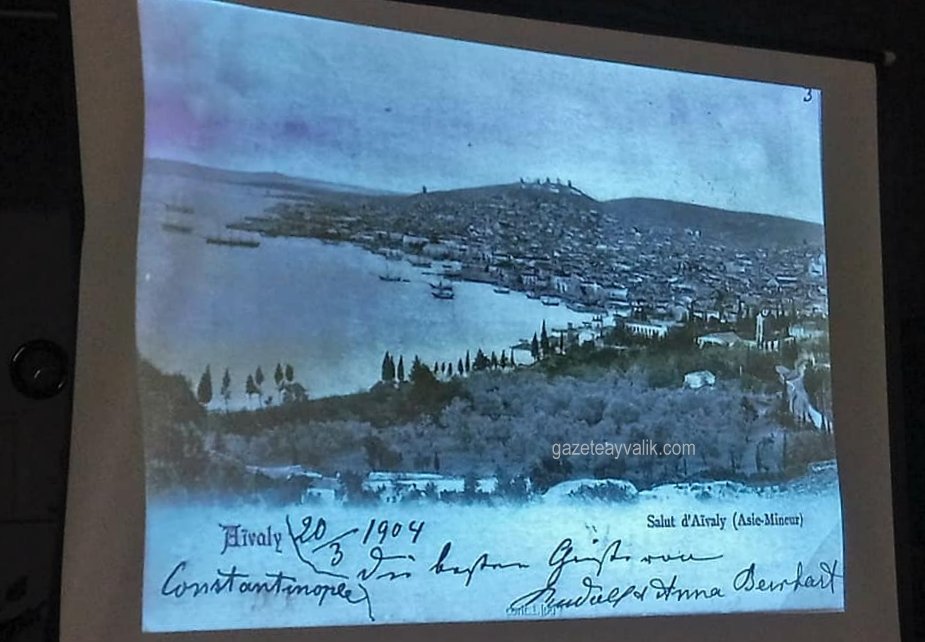 3
gazeteayvalik.com
Salut d'Aïvaly (Asie-Mineur)
Aïvaly 20/3 1904
Constantinople die besten Grüsse von
Rudolf & Anna Bernhart